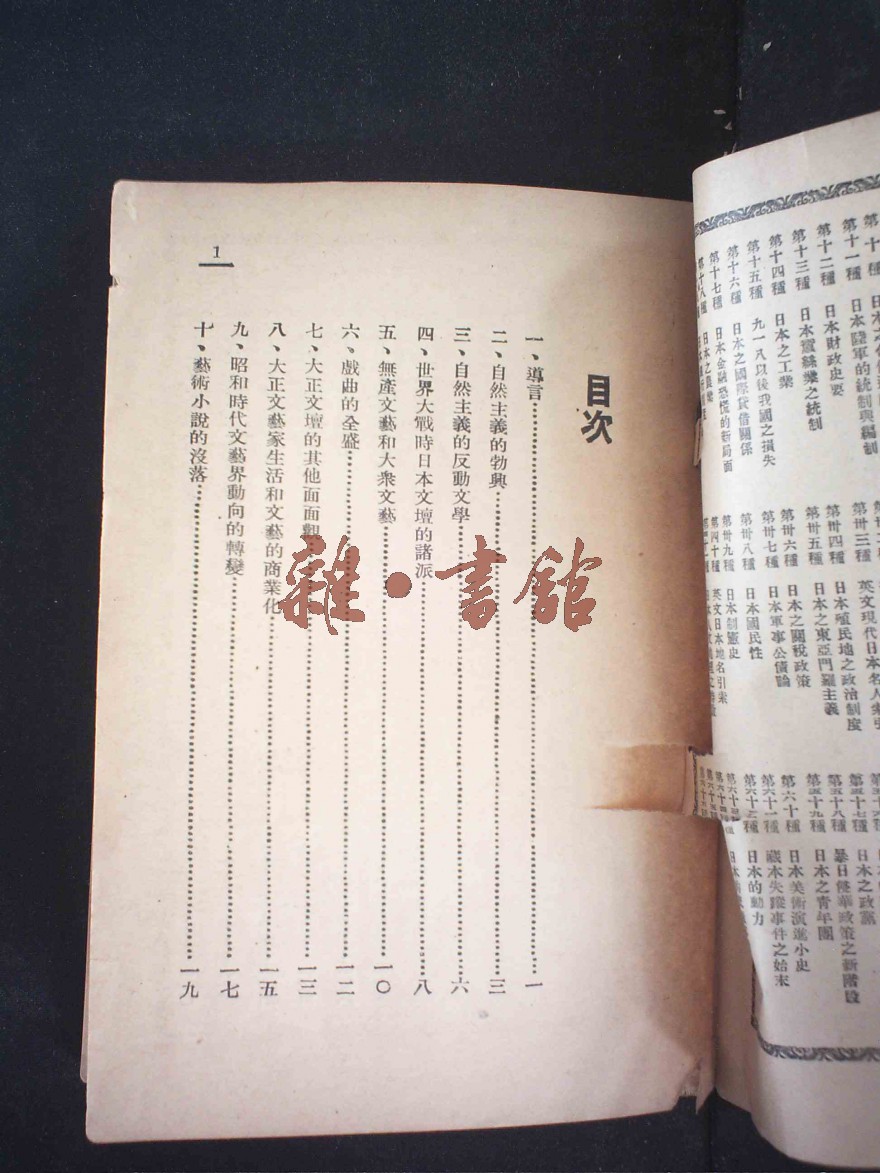 第十一種 日本陸軍的統制與編制
第十二種 日本財政史要
第十三種 日本蠶絲業之統制
第十四種 日本之工業
第十五種 九一八以後我國之損失
第十六種 日本之國際貸借關係
第十七種 日本金融恐慌的新局面
第十八種
第卅三種 英文現代日本名人索引
第卅四種 日本殖民地之政治制度
第卅五種 日本之東亞門羅主義
第卅六種 日本之關稅政策
第卅七種 日本軍事公債論
第卅八種 日本國民性
第卅九種 日本制憲史
第四十種 英文日本地名引索
第五十七種 日本之政黨
第五十八種 暴日侵華政策之新階段
第五十九種 日本之青年團
第六十種 日本美術演進小史
第六十一種 藏本失蹤事件之始末
第六十二種 日本的動力
目次
一、導言 一
二、自然主義的勃興 三
三、自然主義的反動文學 六
四、世界大戰時日本文壇的諸派 八
五、無產文藝和大衆文藝 一〇
六、戲曲的全盛 一二
七、大正文壇的其他面面觀 一三
八、大正文藝家生活和文藝的商業化 一五
九、昭和時代文藝界動向的轉變 一七
十、藝術小說的沒落 一九
1
雜·書館